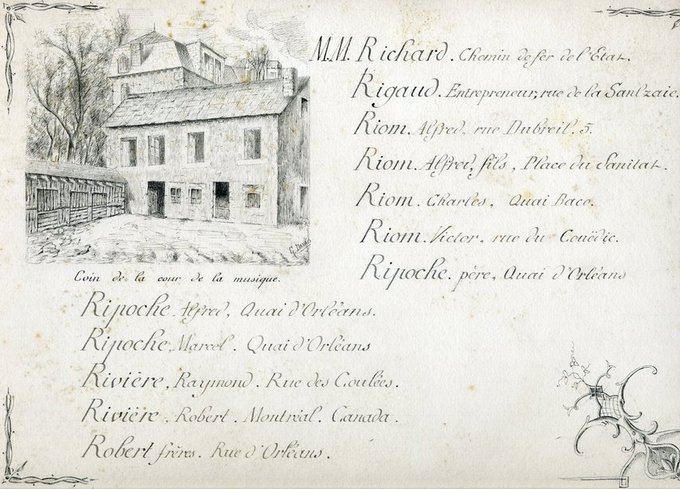 M.M. Richard. Chemin de fer de l'Etat.
Rigaud. Entrepreneur, rue de la Santzaie.
Riom. Alfred, rue Dubreil, 5.
Riom. Alfred, fils, Place du Sanitat.
Riom. Charles, Quai Baco.
Riom. Victor, rue du Couëdic.
Ripoche. père, Quai d'Orléans
Coin de la cour de la musique.
Ripoche. Alfred, Quai d'Orléans.
Ripoche, Marcel. Quai d'Orléans
Rivière. Raymond. Rue des Coulées.
Rivière. Robert. Montréal. Canada.
Robert frères. Rue d'Orléans.